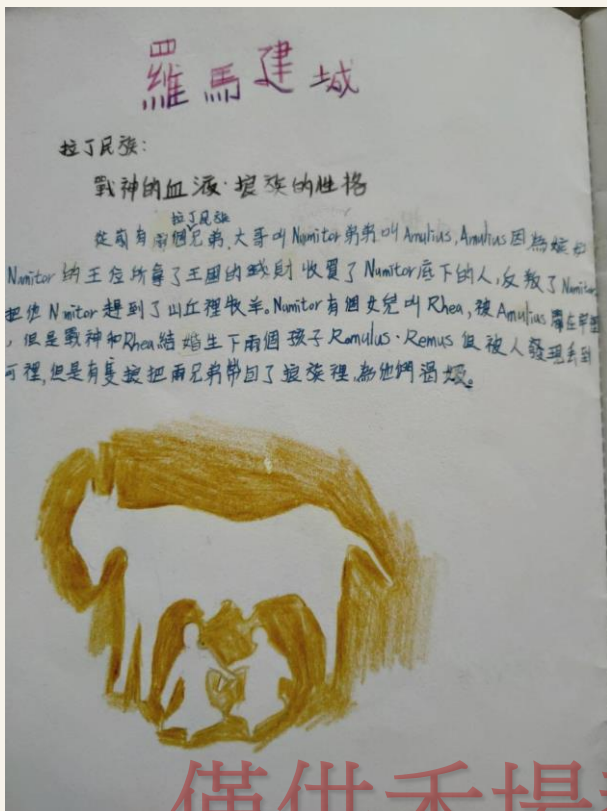 羅馬建城
拉丁民族:
戰神的血液·狼族的性格
拉丁民族
從前有兩個兄弟,大哥叫Numitor弟弟叫Amulius,Amulius因為嫉妒
Numitor的王位所拿了王國的財收買了Numitor底下的人,反叛了Numitor
把他Nmitor趕到了山丘裡牧羊。Numitor有個女兒叫Rhea,被Amulius關在
,但是戰神和Rhea結婚生下兩個孩子Romulus·Remus但被人發現丟到
河裡,但是有隻狼把兩兄弟帶回了狼族裡,為他們
僅供禾揚